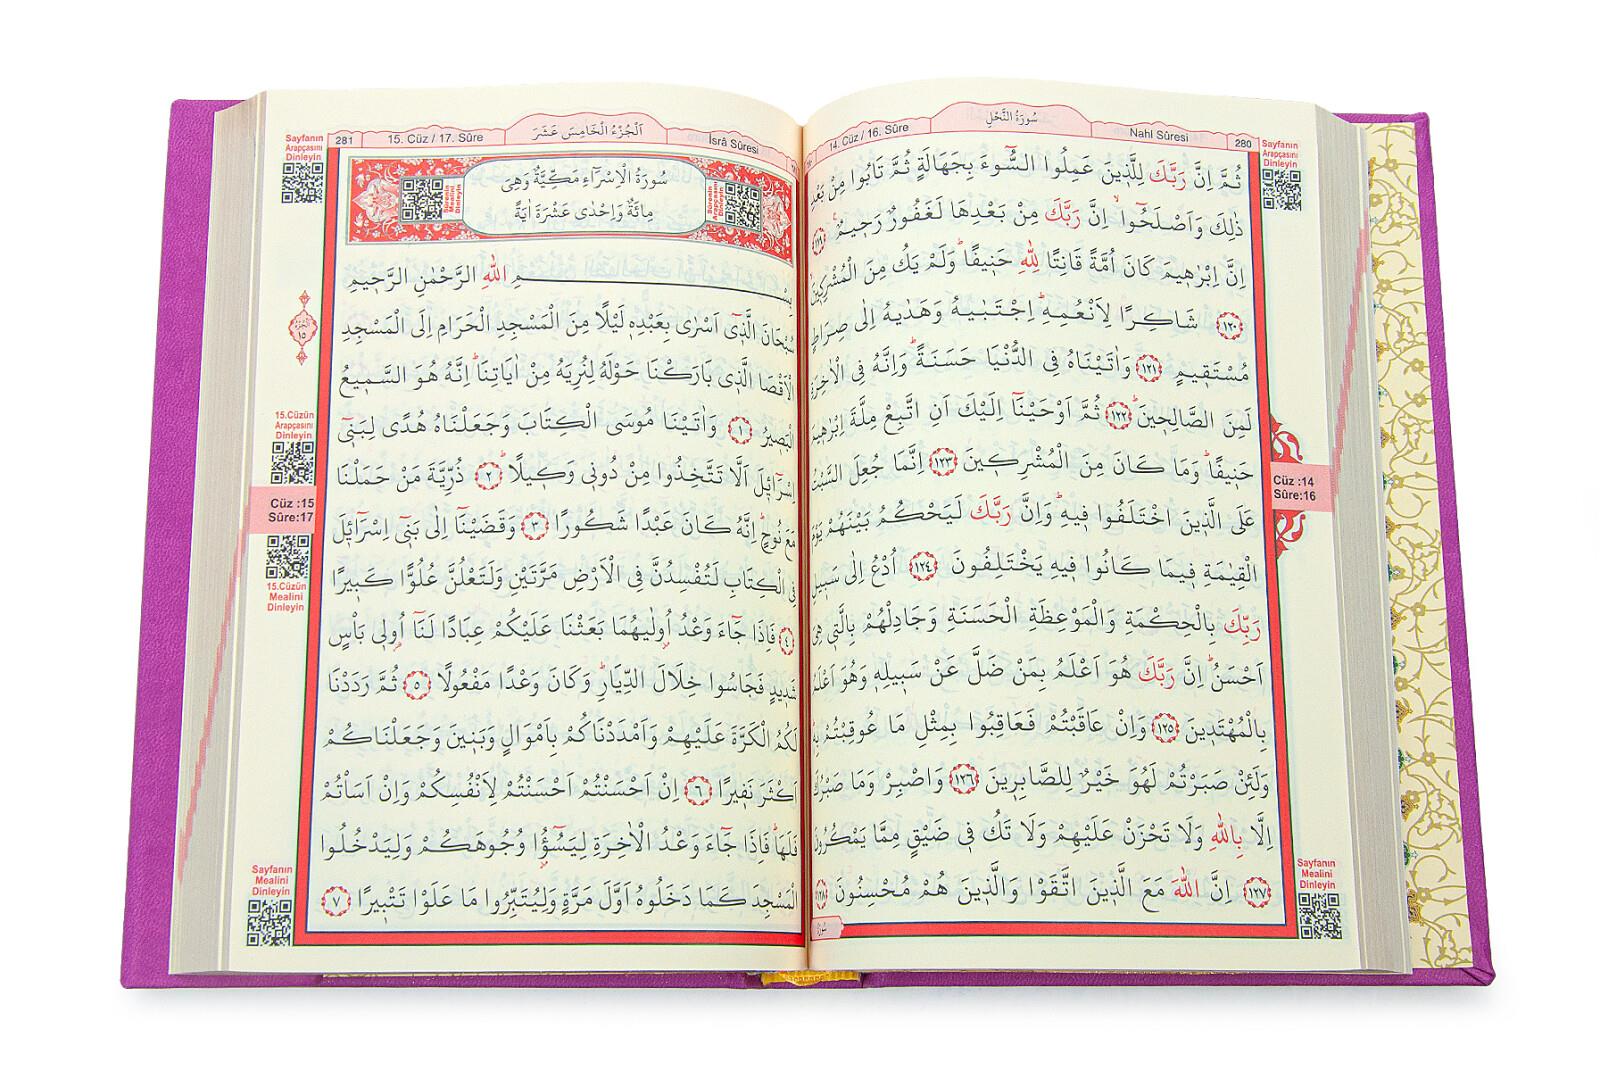 Sayfanın
Arapçasını
Dinleyin
280
Nahl Sûresi
سُورَةُ النَّحْلِ
14. Cüz / 16. Sûre
ثُمَّ اِنَّ رَبَّكَ لِلَّذ۪ينَ عَمِلُوا السُّٓوءَ بِجَهَالَةٍ ثُمَّ تَابُوا مِنْ بَعْدِ
ذٰلِكَ وَاَصْلَحُٓواۙ اِنَّ رَبَّكَ مِنْ بَعْدِهَا لَغَفُورٌ رَح۪يمٌ۟ ﴿١١٩﴾
اِنَّ اِبْرٰه۪يمَ كَانَ اُمَّةً قَانِتًا لِلّٰهِ حَن۪يفًاۜ وَلَمْ يَكُ مِنَ الْمُشْرِك۪ينَۙ
﴿١٢٠﴾ شَاكِرًا لِاَنْعُمِهِۜ اِجْتَبٰيهُ وَهَدٰيهُ اِلٰى صِرَاطٍ
مُسْتَق۪يمٍ ﴿١٢١﴾ وَاٰتَيْنَاهُ فِي الدُّنْيَا حَسَنَةًۜ وَاِنَّهُ فِي الْاٰخِرَةِ
لَمِنَ الصَّالِح۪ينَۜ ﴿١٢٢﴾ ثُمَّ اَوْحَيْنَٓا اِلَيْكَ اَنِ اتَّبِعْ مِلَّةَ اِبْرٰه۪يمَ
حَن۪يفًاۜ وَمَا كَانَ مِنَ الْمُشْرِك۪ينَ ﴿١٢٣﴾ اِنَّمَا جُعِلَ السَّبْتُ
عَلَى الَّذ۪ينَ اخْتَلَفُوا ف۪يهِۜ وَاِنَّ رَبَّكَ لَيَحْكُمُ بَيْنَهُمْ يَوْمَ
الْقِيٰمَةِ ف۪يمَا كَانُوا ف۪يهِ يَخْتَلِفُونَ ﴿١٢٤﴾ اُدْعُ اِلٰى سَب۪يلِ
رَبِّكَ بِالْحِكْمَةِ وَالْمَوْعِظَةِ الْحَسَنَةِ وَجَادِلْهُمْ بِالَّت۪ي هِيَ
اَحْسَنُۜ اِنَّ رَبَّكَ هُوَ اَعْلَمُ بِمَنْ ضَلَّ عَنْ سَب۪يلِه۪ وَهُوَ اَعْلَمُ
بِالْمُهْتَد۪ينَ ﴿١٢٥﴾ وَاِنْ عَاقَبْتُمْ فَعَاقِبُوا بِمِثْلِ مَا عُوقِبْتُمْ بِه۪ۜ
وَلَئِنْ صَبَرْتُمْ لَهُوَ خَيْرٌ لِلصَّابِر۪ينَ ﴿١٢٦﴾ وَاصْبِرْ وَمَا صَبْرُكَ
اِلَّا بِاللّٰهِ وَلَا تَحْزَنْ عَلَيْهِمْ وَلَا تَكُ ف۪ي ضَيْقٍ مِمَّا يَمْكُرُونَ
﴿١٢٧﴾ اِنَّ اللّٰهَ مَعَ الَّذ۪ينَ اتَّقَوْا وَالَّذ۪ينَ هُمْ مُحْسِنُونَ ﴿١٢٨﴾
Cüz :14
Sûre:16
Sayfanın
Mealini
Dinleyin
İsrâ Sûresi
اَلْجُزْءُ الْخَامِسَ عَشَرَ
15. Cüz / 17. Sûre
281
Sayfanın
Arapçasını
Dinleyin
سُورَةُ الْاِسْرَٓاءِ مَكِّيَّةٌ وَهِيَ
مِائَةٌ وَاِحْدٰى عَشْرَةَ اٰيَةً
Sûrenin
Arapçasını
Dinleyin
Sûrenin
Mealini
Dinleyin
بِسْمِ اللّٰهِ الرَّحْمٰنِ الرَّح۪يمِ
سُبْحَانَ الَّذ۪ٓي اَسْرٰى بِعَبْدِه۪ لَيْلًا مِنَ الْمَسْجِدِ الْحَرَامِ اِلَى الْمَسْجِدِ
الْاَقْصَا الَّذ۪ي بَارَكْنَا حَوْلَهُ لِنُرِيَهُ مِنْ اٰيَاتِنَاۜ اِنَّهُ هُوَ السَّم۪يعُ
الْبَص۪يرُ ﴿١﴾ وَاٰتَيْنَا مُوسَى الْكِتَابَ وَجَعَلْنَاهُ هُدًى لِبَن۪ٓي
اِسْرَٓائ۪لَ اَلَّا تَتَّخِذُوا مِنْ دُون۪ي وَك۪يلًاۜ ﴿٢﴾ ذُرِّيَّةَ مَنْ حَمَلْنَا
مَعَ نُوحٍۜ اِنَّهُ كَانَ عَبْدًا شَكُورًا ﴿٣﴾ وَقَضَيْنَٓا اِلٰى بَن۪ٓي اِسْرَٓائ۪لَ
فِي الْكِتَابِ لَتُفْسِدُنَّ فِي الْاَرْضِ مَرَّتَيْنِ وَلَتَعْلُنَّ عُلُوًّا كَب۪يرًا
﴿٤﴾ فَاِذَا جَٓاءَ وَعْدُ اُو۫لٰيهُمَا بَعَثْنَا عَلَيْكُمْ عِبَادًا لَنَٓا اُو۬ل۪ي بَأْسٍ
شَد۪يدٍ فَجَاسُوا خِلَالَ الدِّيَارِۜ وَكَانَ وَعْدًا مَفْعُولًا ﴿٥﴾ ثُمَّ رَدَدْنَا
لَكُمُ الْكَرَّةَ عَلَيْهِمْ وَاَمْدَدْنَاكُمْ بِاَمْوَالٍ وَبَن۪ينَ وَجَعَلْنَاكُمْ
اَكْثَرَ نَف۪يرًا ﴿٦﴾ اِنْ اَحْسَنْتُمْ اَحْسَنْتُمْ لِاَنْفُسِكُمْ وَاِنْ اَسَأْتُمْ
فَلَهَاۜ فَاِذَا جَٓاءَ وَعْدُ الْاٰخِرَةِ لِيَسُٓؤُ۫ا وُجُوهَكُمْ وَلِيَدْخُلُوا
الْمَسْجِدَ كَمَا دَخَلُوهُ اَوَّلَ مَرَّةٍ وَلِيُتَبِّرُوا مَا عَلَوْا تَتْب۪يرًا ﴿٧﴾
الجزء
١٥
15.Cüzün
Arapçasını
Dinleyin
Cüz :15
Sûre:17
15.Cüzün
Mealini
Dinleyin
Sayfanın
Mealini
Dinleyin